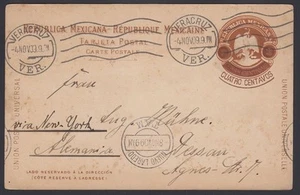 REPUBLICA MEXICANA-REPUBLIQUE MEXICAINE
TARJETA POSTAL
CARTE POSTALE
VERACRUZ
VER.
VERACRUZ
VER.
CUATRO CENTAVOS
UNION POSTAL UNIVERSAL
UNION POSTALE UNIVERSELLE
Frau
Aug. Höhne
via New-York
Dessau
Alemania
Agnes-Str. 7
LADO RESERVADO A LA DIRECCIÓN
(COTE RESERVE A L'ADRESSE)